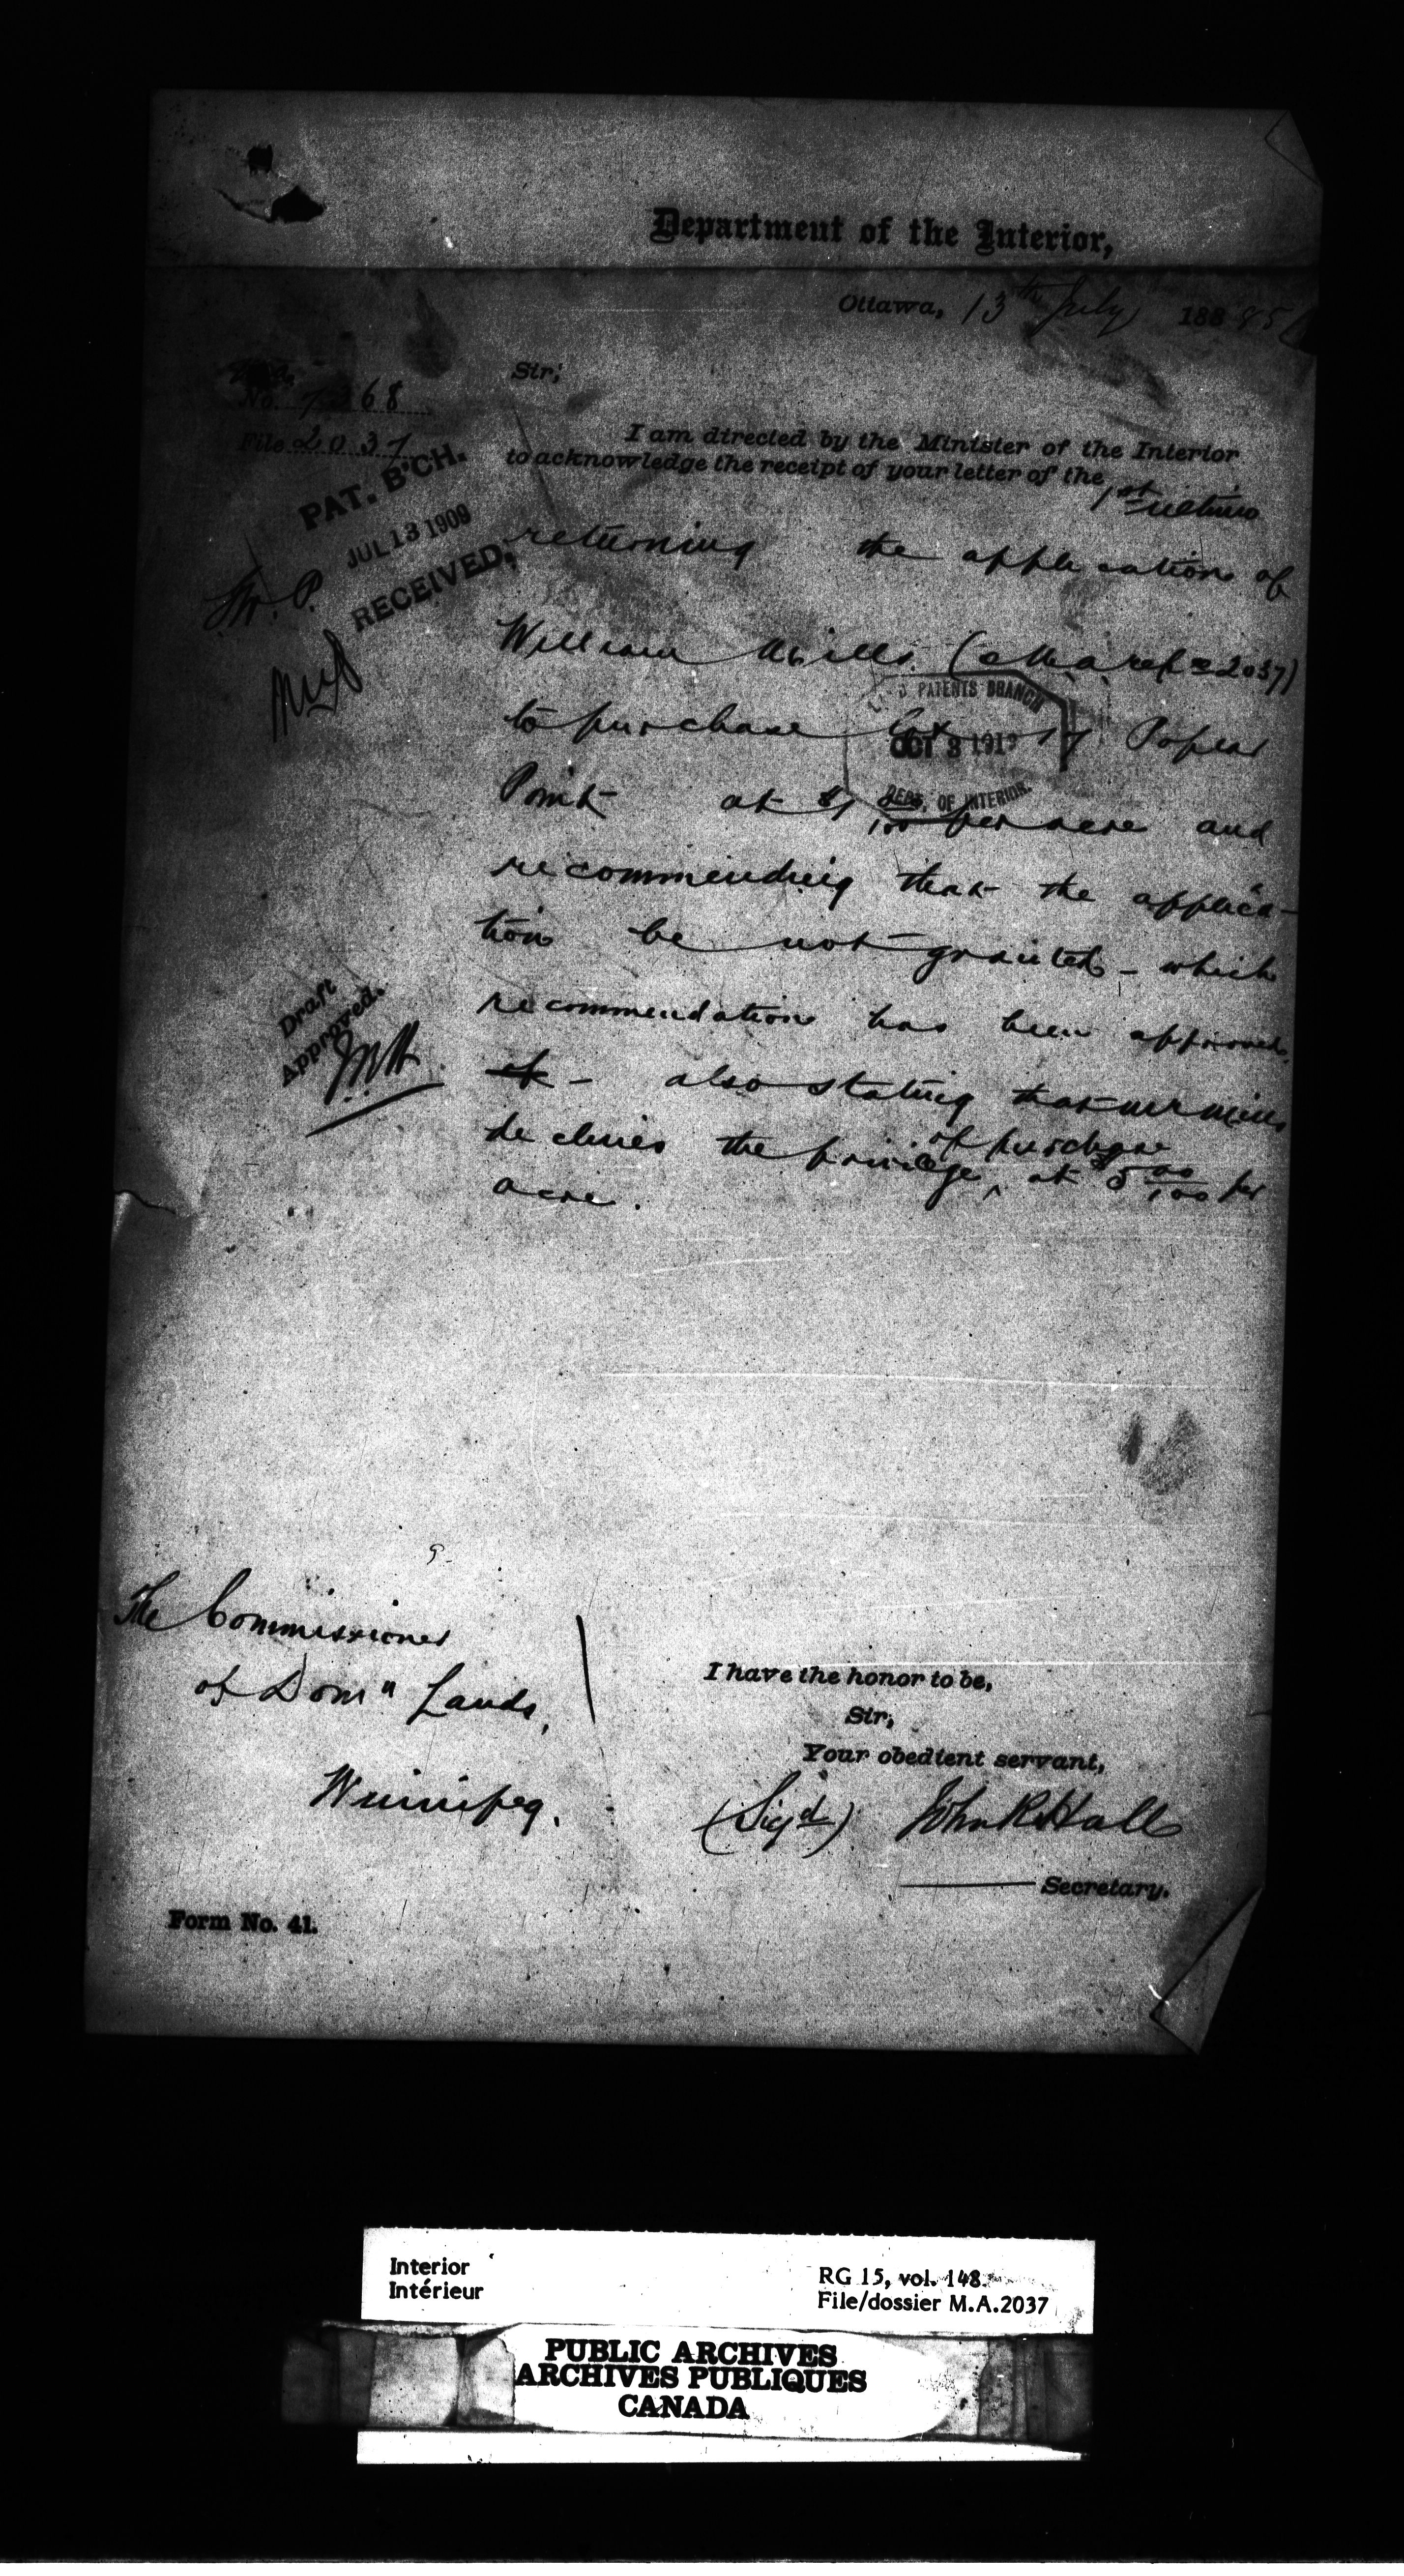 Department of the Interior,
Ottawa, 13th July 188 85
Sir;
No. 7368
File 2037
I am directed by the Minister of the Interior
to acknowledge the receipt of your letter of the
1st ultimo
PAT. B'CH.
JUL 13 1909
RECEIVED,
returning the application of
William Mills (M.A. ref no 2037)
PATENTS BRANCH
OCT 8 1913
DEPT. OF INTERIOR.
to purchase Lot 17 Poplar
Point at $1 /100 per acre and
recommending that the applica-
tion be not granted - which
recommendation has been approved
of - also stating that Mr Mills
declines the privilege of purchase at $5 00/100 per
acre.
Draft
Approved.
The Commissioner
of Domn Lands,
Winnipeg.
I have the honor to be,
Sir;
Your obedient servant,
(Sigd) John R Hall
Secretary.
Form No. 41.
Interior
Intérieur
RG 15, vol. 148
File/dossier M.A.2037
PUBLIC ARCHIVES
ARCHIVES PUBLIQUES
CANADA